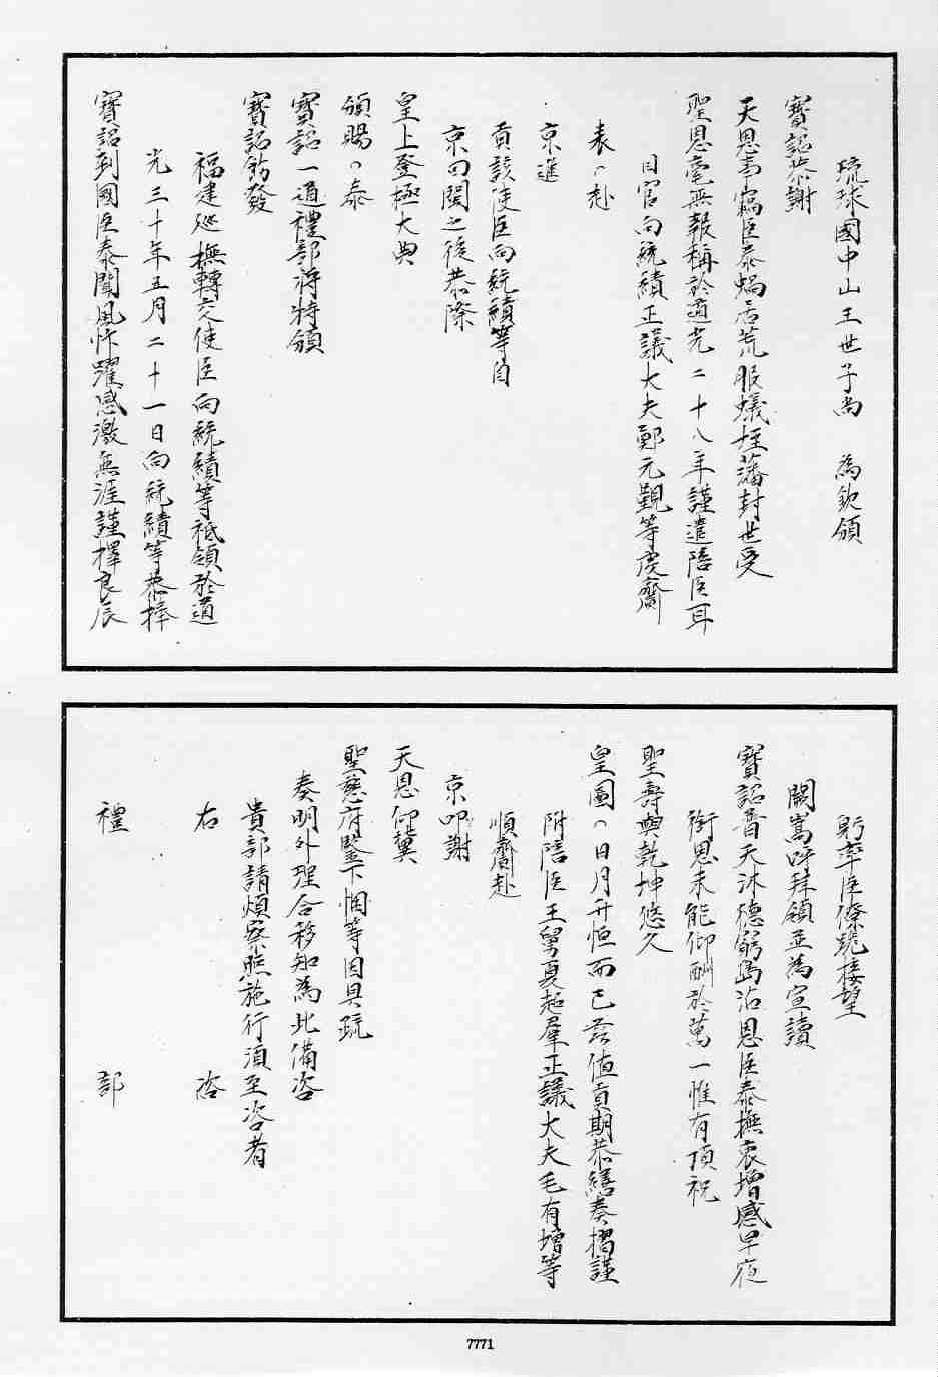 琉球國中山王世子尚　為欽頒
寶詔恭謝
天恩事竊臣泰蝸居荒服蟻垤藩封世受
聖恩毫無報稱於道光二十八年謹遣陪臣耳
目官向統績正議大夫鄭元覲等虔齎
表ヽ赴
京進
貢該使臣向統績等自
京回閩之後恭際
皇上登極大典
頒賜ヽ泰
寶詔一道禮部將特頒
寶詔飭發
福建巡撫轉交使臣向統績等祗領於道
光三十年五月二十一日向統績等恭捧
寶詔到國臣泰聞風忭躍感激無涯謹擇良辰
躬率臣僚蹺棲望
闕嵩呼拜領並為宣讀
寶詔普天沐德窮島沾恩臣泰撫衷增感早夜
銜恩未能仰酬於萬一惟有頂祝
聖壽與乾坤悠久
皇圖ヽ日月升恒而已茲值貢期恭繕奏摺謹
附陪臣王舅夏超羣正議大夫毛有增等
順齎赴
京叩謝
天恩仰冀
聖慈府鑒下悃等因具疏
奏明外理合移知為此備咨
貴部請煩察照施行須至咨者
右　　咨
禮　　部
7771